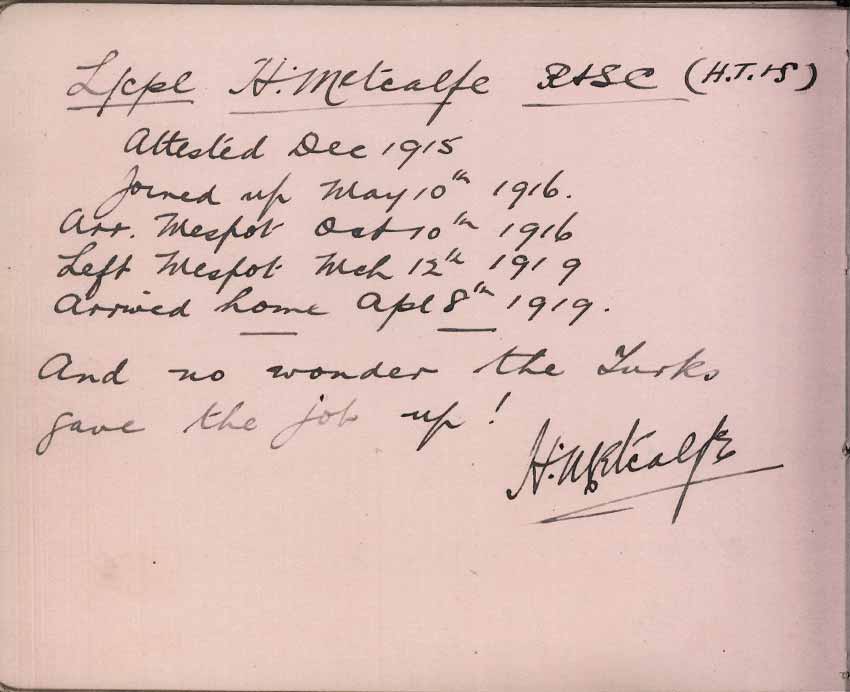 L/cpl H. Metcalfe RASC (H.T. & S)
Attested Dec 1915
Joined up May 10th 1916.
Arr. Mespot Oct 10th 1916
Left Mespot Mch 12th 1919
Arrived home Apl 8th 1919.
And no wonder the Turks
gave the job up!
H. Metcalfe